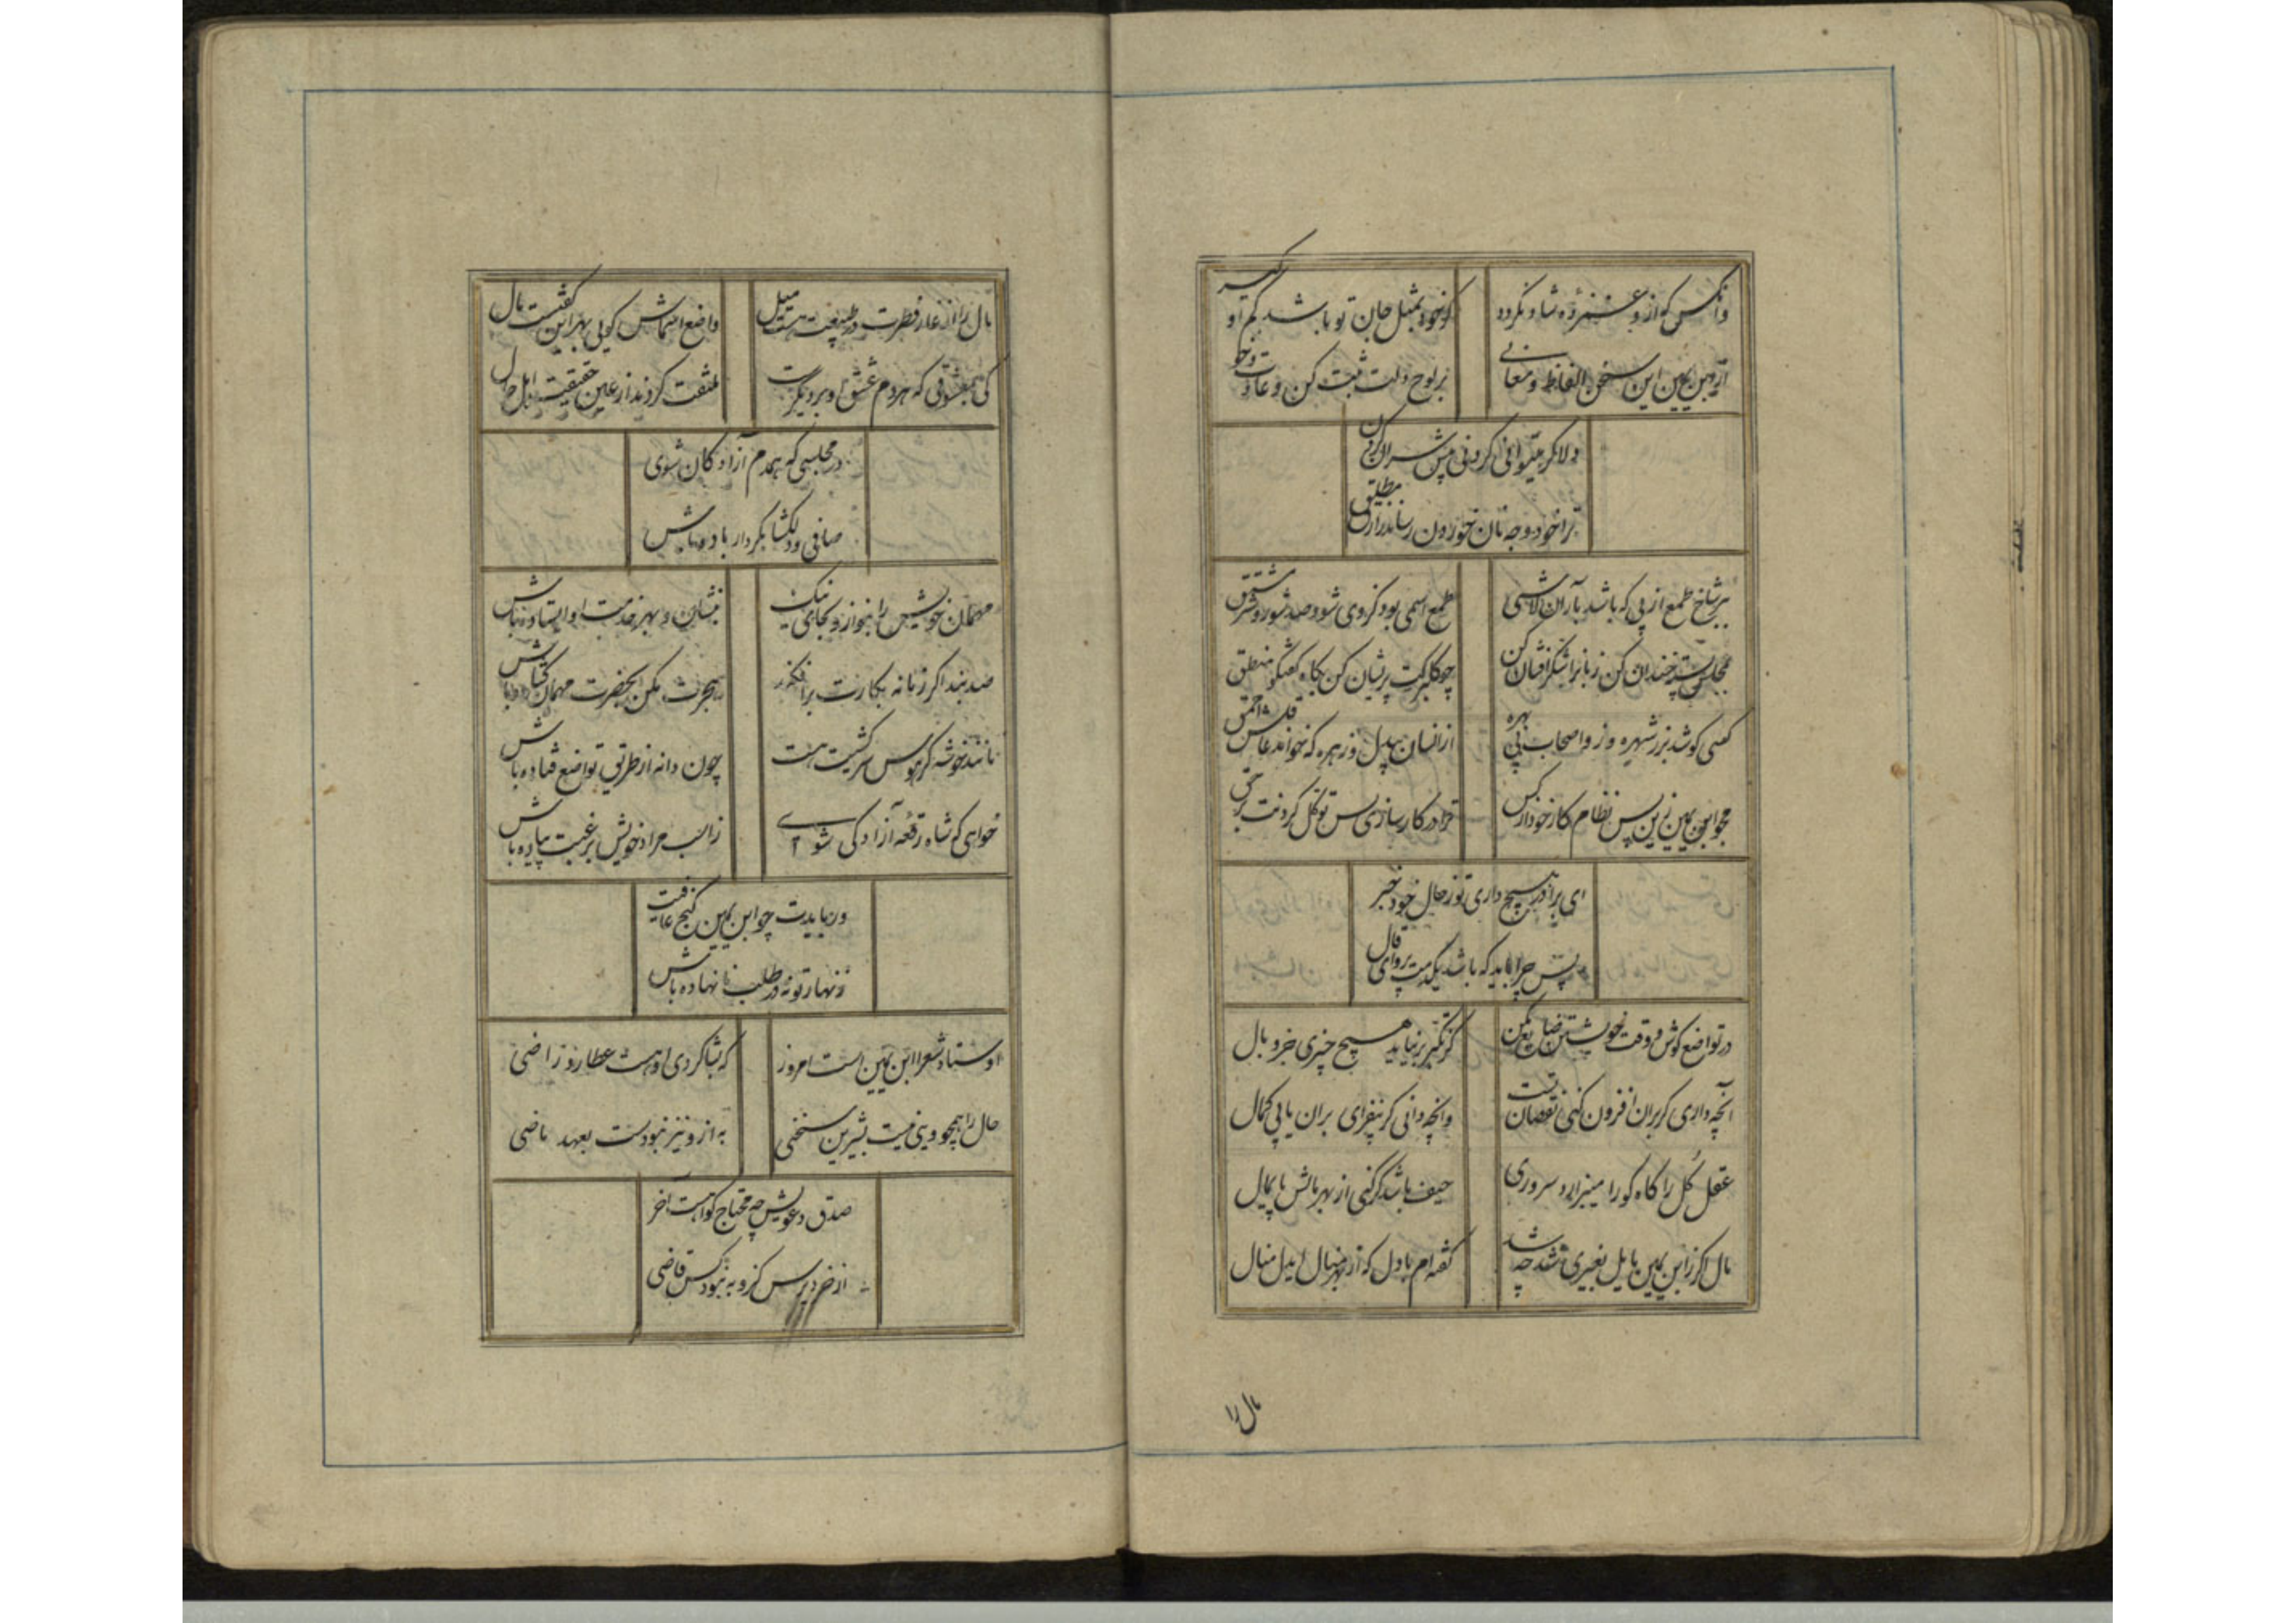 وانکس که ازو غمزده شاد نکردد
کر خود بمثل جان تو باشد کم او کیر
از ابن یمین این سخن الفاظ و معانی
بر لوح دلت ثبت کن و عادت و خو
دلا کر میتوانی کردنی پیش سران کردن
ترا خود وجه نان خوردن رساند رازق مطلق
بر شاخ طمع از پی که باشد بار آن لاشی
طمع اسمی بود کز وی شود صد شور و شر مشتق
مجلس پسته خندان کن زبانرا شکرافشان کن
چو کلبرکت پریشان کن بکاه کفتکو منطق
کسی کوشد بزر شهره وزو اصحاب بی بهره
از انسان بیدل و زهره که خواند عاقلش احمق
چو ابن یمین زین پس نظام کار خود از کس
ترا در کارسازی بس توکل کردنت بر حق
ای برادر هیچ داری تو ز حال خود خبر
پس چرا باید که باشد یکدمت پروای قال
در تواضع کوش و وقت خویشتن ضایع مکن
کز تکبر بر نیاید هیچ چیزی جز وبال
آنچه داری کر بران افزون کنی نقصان تست
وانچه دانی کر بیفزای بران یابی کمال
عقل کل را کاه کو را میبرازد سروری
حیف باشد کر کنی از بهر مالش پایمال
مال اکر ز ابن یمین مایل بغیری شد چه شد
کفته ام با دل که از بهر منال ایدل منال
مال را
مال را از غار فطرت در طبیعت هست میل
واضع اسماش کویی بهر این کفتست مال
کی بمعشوقی که هر دم عشق او بر دیکریست
ملتفت کردند از عین حقیقت اهل حال
در مجلسی که همدم آزادکان شوی
صافی و دلکشا بکردار باده باش
مهمان خویش را بنواز و بجای نیک
بنشان و بهر خدمت او ایستاده باش
صد بند اکر زمانه بکارت برافکند
مهمان
مانند خوشه کر هوس سرکشیت هست
چون دانه از طریق تواضع فتاده باش
خواهی که شاه رقعه آزادکی شوی
ز اسب مراد خویش برغبت پیاده باش
ور بایدت چو ابن یمین کنج عافیت
زنهار تو نه در طلب نا نهاده باش
اوستاد شعرا ابن یمین است امروز
که بشاکردی او هست عطارد راضی
حال را همچو ویی نیست بشیرین سخنی
به ازو نیز نبودست بعهد ماضی
صدق دعویش چه محتاج کواهست آخر
از خرد پرس کزو به نبود کس قاضی